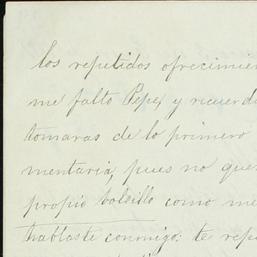 los repetidos ofrecimien
me falto Pepe, y recuerd
tomaras de lo primero
mentaria, pues no que
propio bolsillo como me
hablaste conmigo: te rep